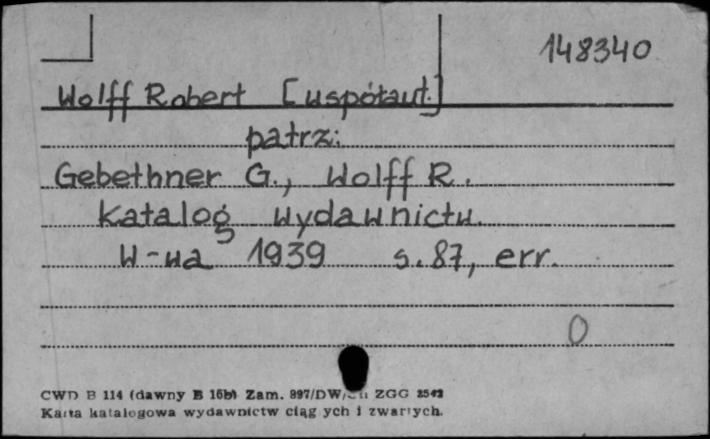 148340
Wolff Robert [współaut.]
patrz:
Gebethner G., Wolff R.
Katalog wydawnictw.
W-wa 1939 s. 87, err.
0
CWD B 114 (dawny B 16b) Zam. 897/DW/ ZGG
Karta katalogowa wydawnictw ciągłych i zwartych.